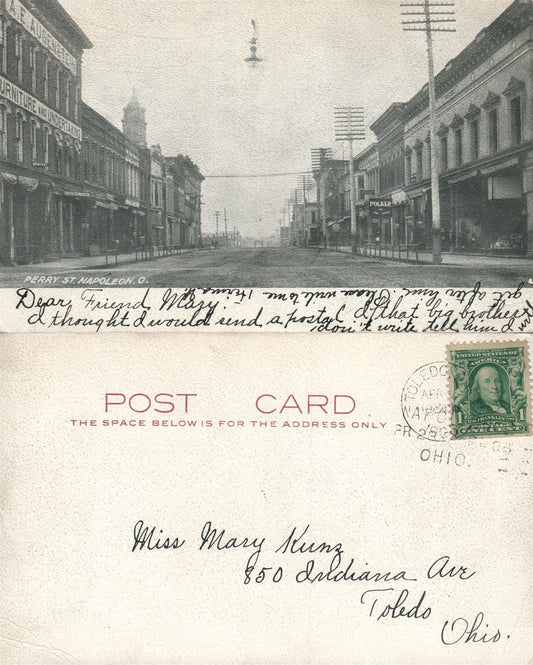 A. E. AUGENSTEIN
FURNITURE AND UNDERTAKING
POLKER
PERRY ST. NAPOLEON, O.
Dear Friend Mary.
I thought I would send a postal if that big brother
don't write tell him I will
get after him. Please write to me
POST CARD.
THE SPACE BELOW IS FOR THE ADDRESS ONLY
TOLEDO
APR
OHIO.
UNITED STATES OF AMERICA
FRANKLIN
1
Miss Mary Kunz
850 Indiana Ave
Toledo
Ohio.